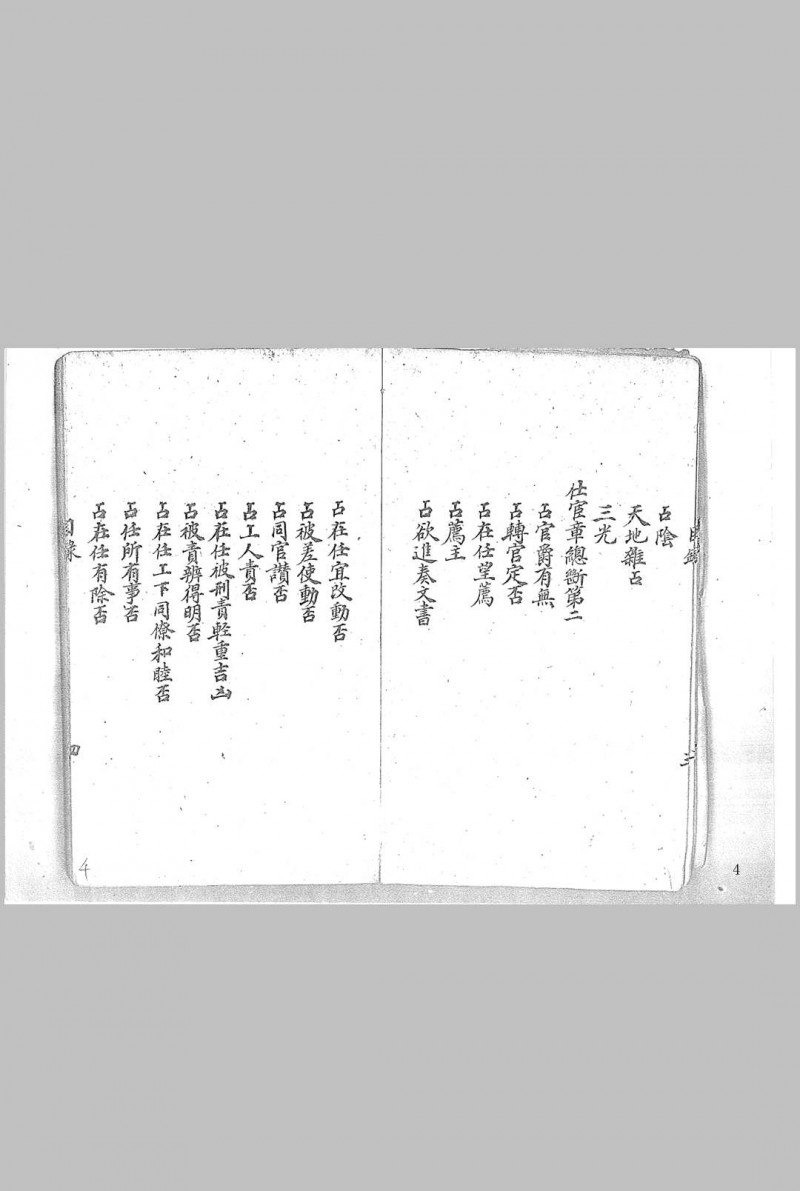 目錄
三
占陰
天地雜占
三光
仕官章總斷第二
占官爵有無
占轉官定否
占在任望薦
占薦主
占欲進奏文書
占在任宜改動否
占被差使動否
占同官讃否
占工人責否
占在任被刑責輕重吉凶
占被責辨得明否
占在任工下同僚和睦否
占任所有事否
占在任有除否
目錄
四
4
4